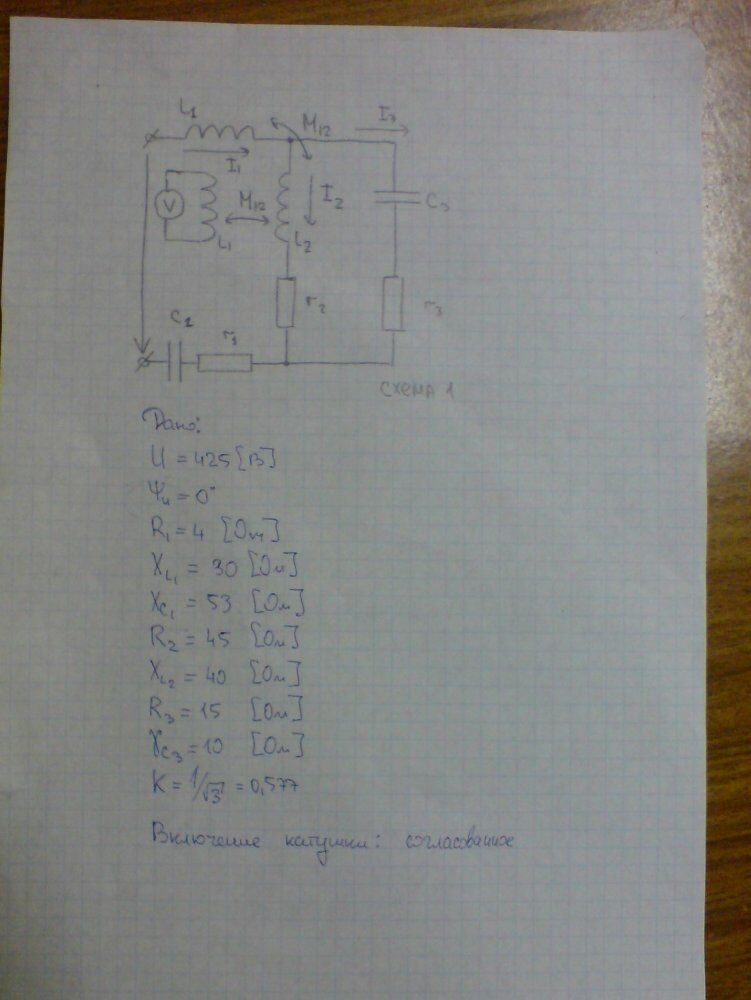 L1
M12
I3
I1
V
L1
M12
I2
L2
C3
r2
r3
C1
r1
СХЕМА 1
Дано:
U = 425 [В]
Ψu = 0°
R1 = 4 [Ом]
XL1 = 30 [Ом]
XC1 = 53 [Ом]
R2 = 45 [Ом]
XL2 = 40 [Ом]
R3 = 15 [Ом]
XC3 = 10 [Ом]
K = 1/√3 = 0,577
Включение катушки: согласованное